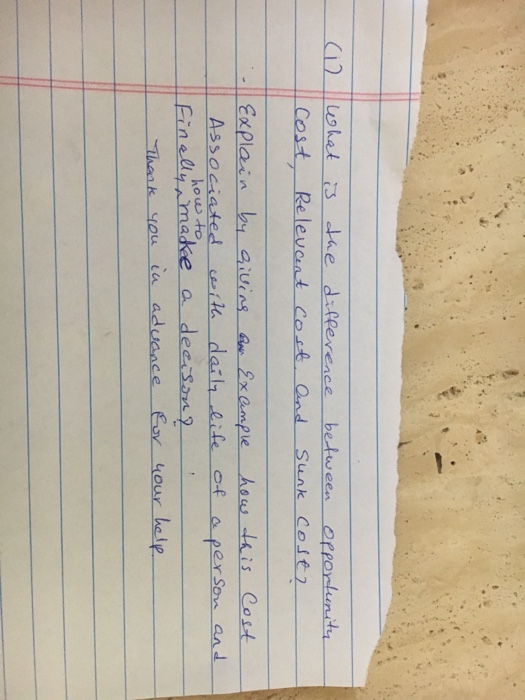 (1) What is the difference between opportunity
Cost, Relevant Cost and Sunk Cost?
. Explain by giving an Example how this Cost
Associated with daily life of a person and
Finally, how to make a decison?
Thank you in advance for your help.